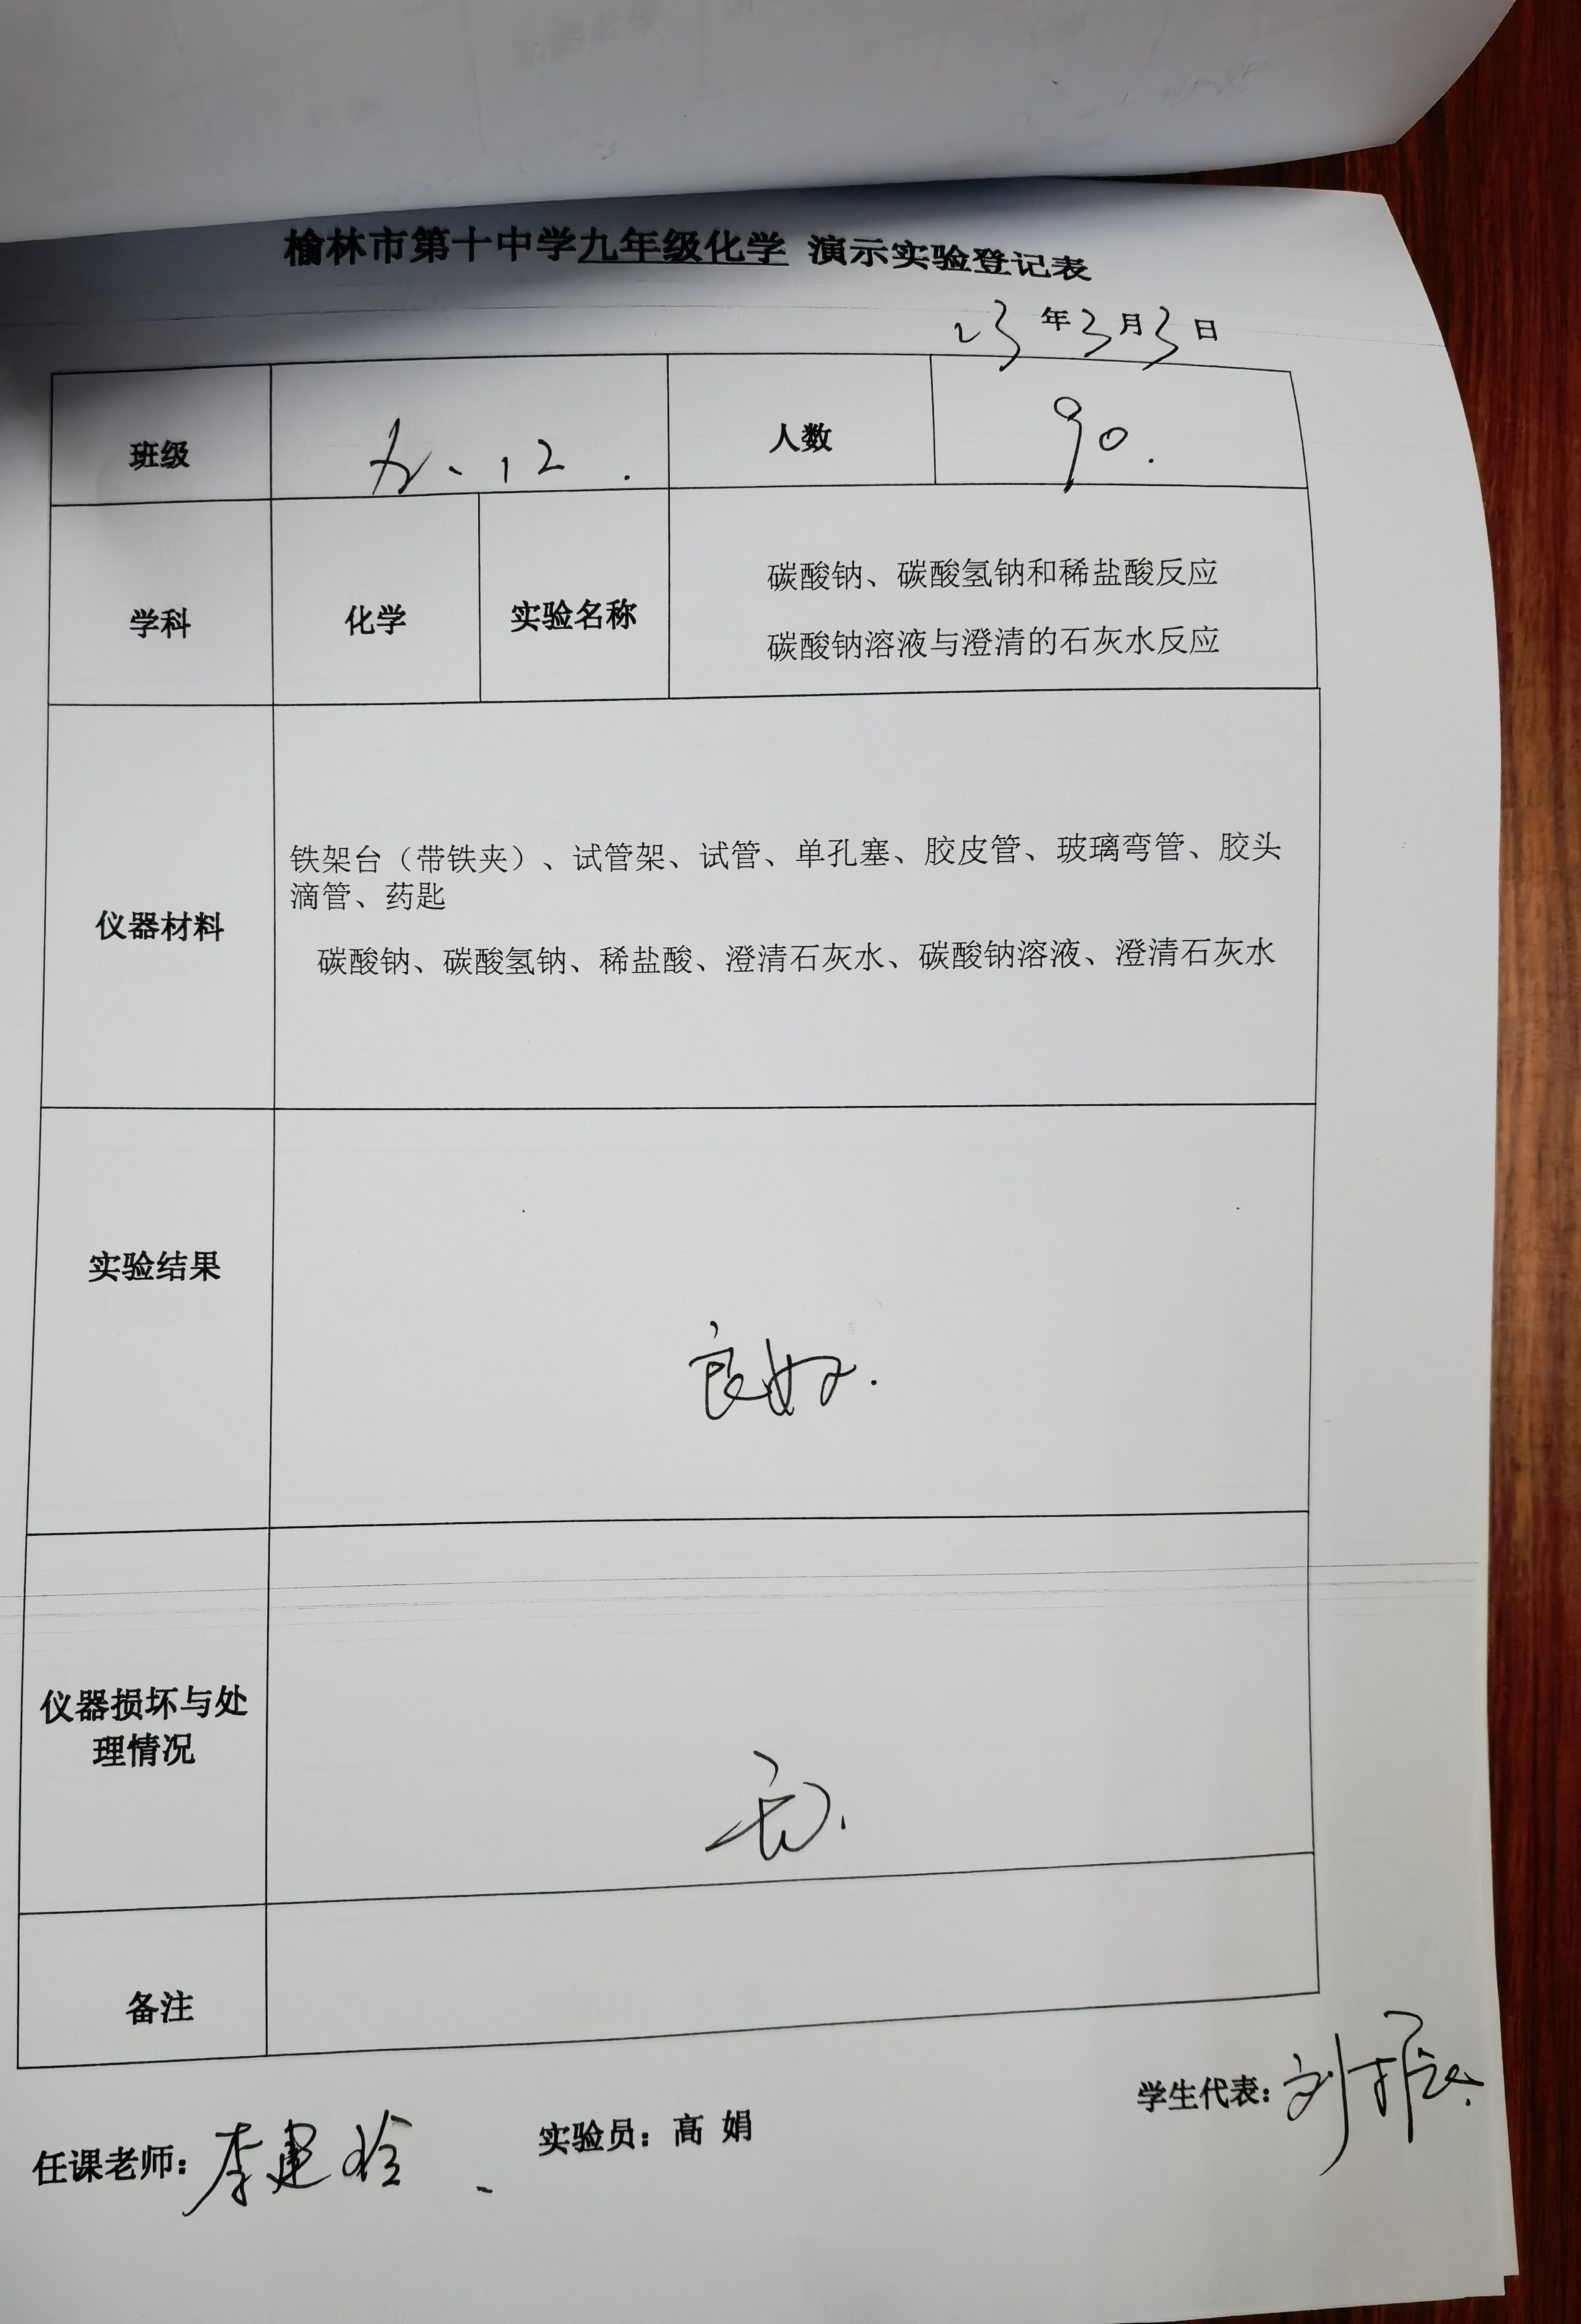 榆林市第十中学九年级化学 演示实验登记表
23年3月3日
班级 九、12. 人数 90.
学科 化学 实验名称 碳酸钠、碳酸氢钠和稀盐酸反应
碳酸钠溶液与澄清的石灰水反应
仪器材料
铁架台（带铁夹）、试管架、试管、单孔塞、胶皮管、玻璃弯管、胶头
滴管、药匙
碳酸钠、碳酸氢钠、稀盐酸、澄清石灰水、碳酸钠溶液、澄清石灰水
实验结果
良好.
仪器损坏与处
理情况
无.
备注
任课老师：李建玲 实验员：高 娟 学生代表：刘